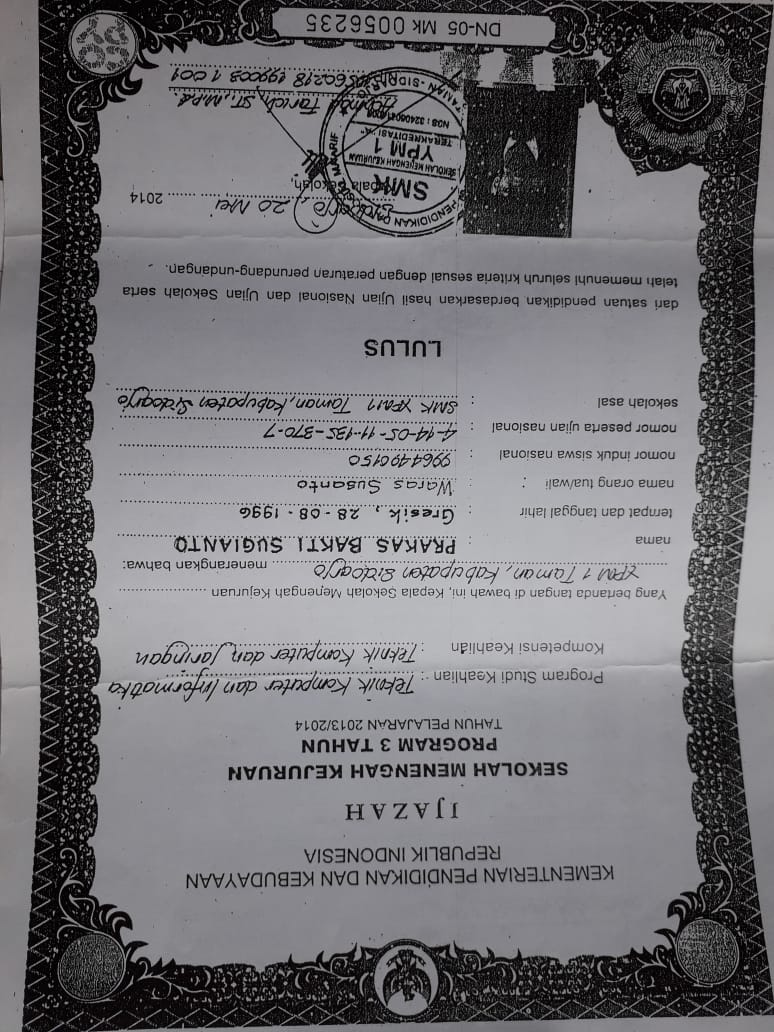 KEMENTERIAN PENDIDIKAN DAN KEBUDAYAAN
REPUBLIK INDONESIA
IJAZAH
SEKOLAH MENENGAH KEJURUAN
PROGRAM 3 TAHUN
TAHUN PELAJARAN 2013/2014
Program Studi Keahlian : Teknik Komputer dan Informatika
Kompetensi Keahlian : Teknik Komputer dan Jaringan
Yang bertanda tangan di bawah ini, Kepala Sekolah Menengah Kejuruan
YPM 1 Taman, Kabupaten Sidoarjo menerangkan bahwa:
nama : PRAKAS BAKTI SUGIANTO
tempat dan tanggal lahir : Gresik, 28-08-1996
nama orang tua/wali : Waras Susanto
nomor induk siswa nasional : 9964490150
nomor peserta ujian nasional : 4-14-05-11-135-370-7
sekolah asal : SMK YPM 1 Taman, Kabupaten Sidoarjo
LULUS
dari satuan pendidikan berdasarkan hasil Ujian Nasional dan Ujian Sekolah serta
telah memenuhi seluruh kriteria sesuai dengan peraturan perundang-undangan.
Sidoarjo, 20 Mei 2014
Kepala Sekolah,
SMK
SEKOLAH MENENGAH KEJURUAN
YPM 1
TERAKREDITASI "A"
TAMAN - SIDOARJO
ST., M.Pd.
DN-05 Mk 0056235